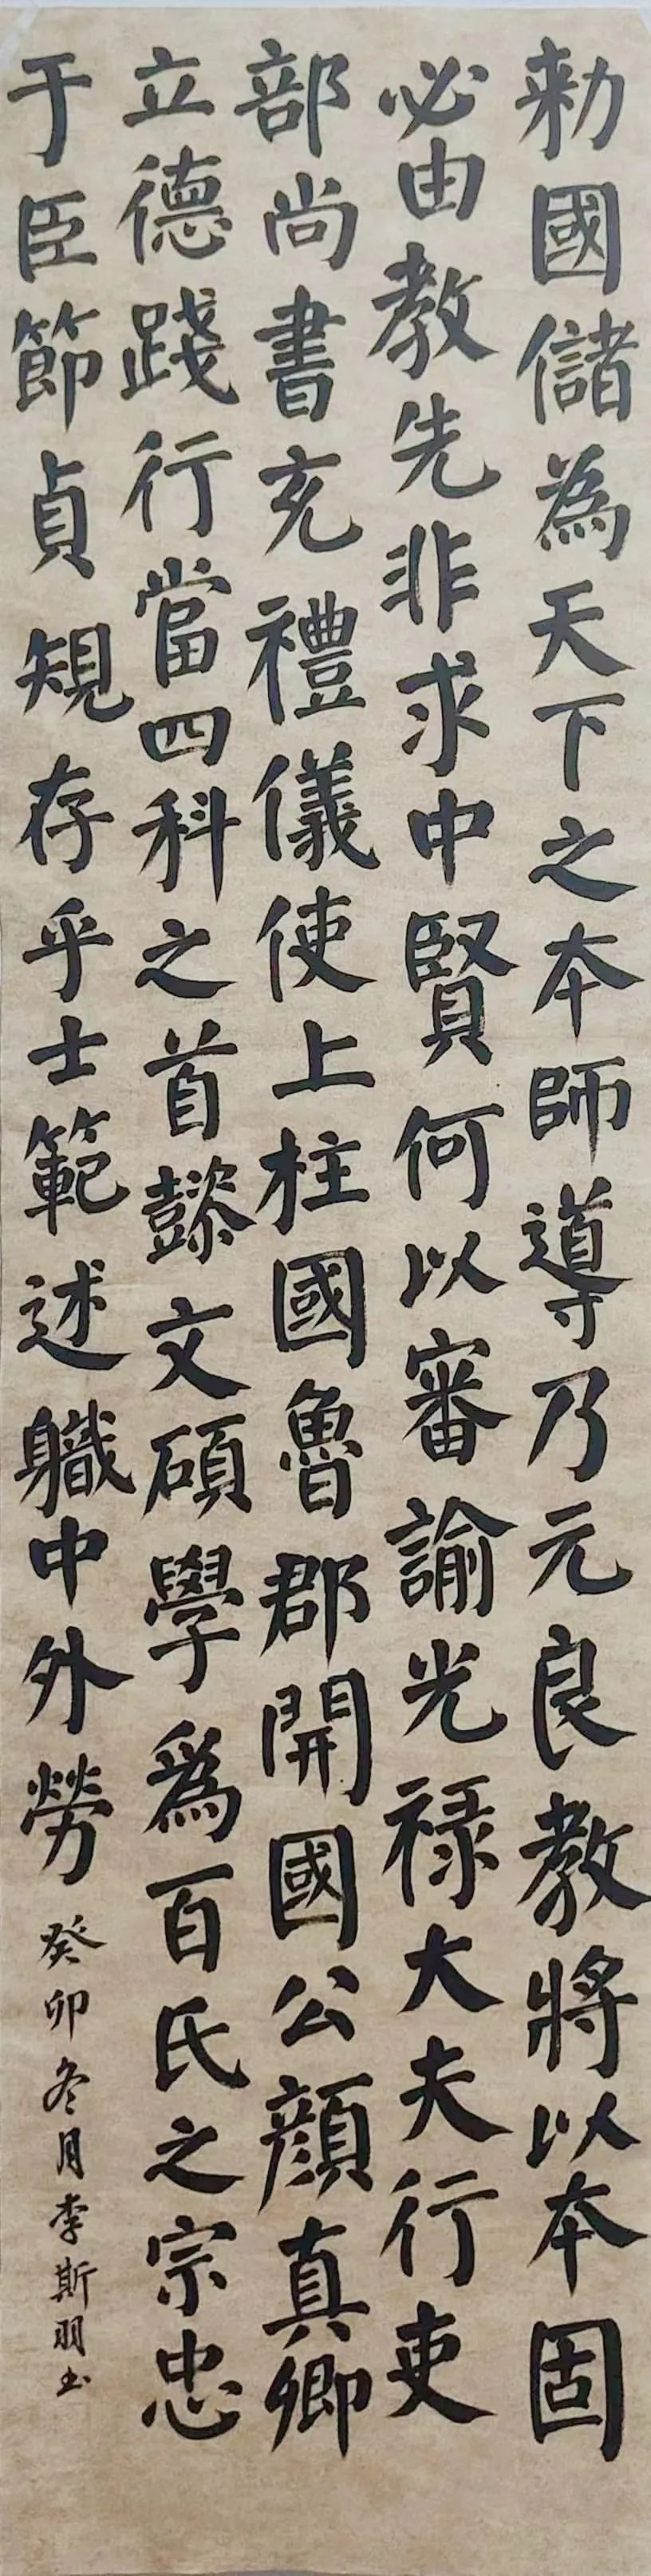 勑國儲為天下之本師導乃元良教將以本固
必由教先非求中賢何以審諭光祿大夫行吏
部尚書充禮儀使上柱國魯郡開國公顏真卿
立德踐行當四科之首懿文碩學為百氏之宗忠
于臣節貞規存乎士範述職中外勞
癸卯冬月李斯羽書